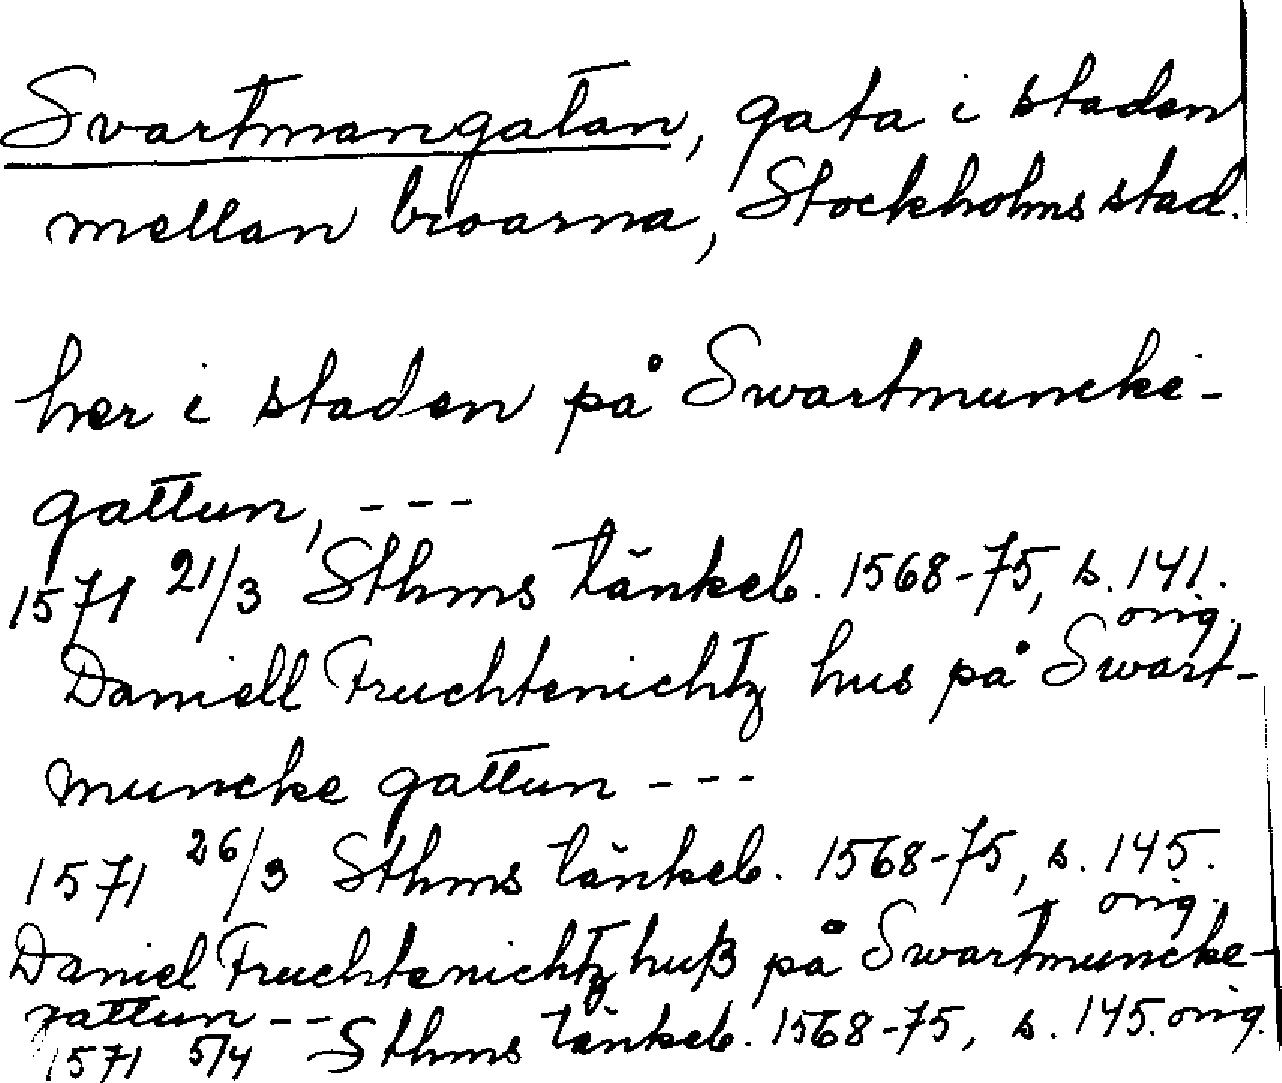 Svartmangatan, gata i staden
mellan broarna, Stockholms stad.
her i staden på Swartmuncke-
gattun, ---
1571 21/3 Sthms tänkeb. 1568-75, s. 141.
orig.
Daniell Fruchtenichtz hus på Swart-
muncke gattun ---
1571 26/3 Sthms tänkeb. 1568-75, s. 145.
orig.
Daniel Fruchtenichtz huß på Swartmuncke-
gattun ---
1571 5/4 Sthms tänkeb. 1568-75, s. 145. orig.